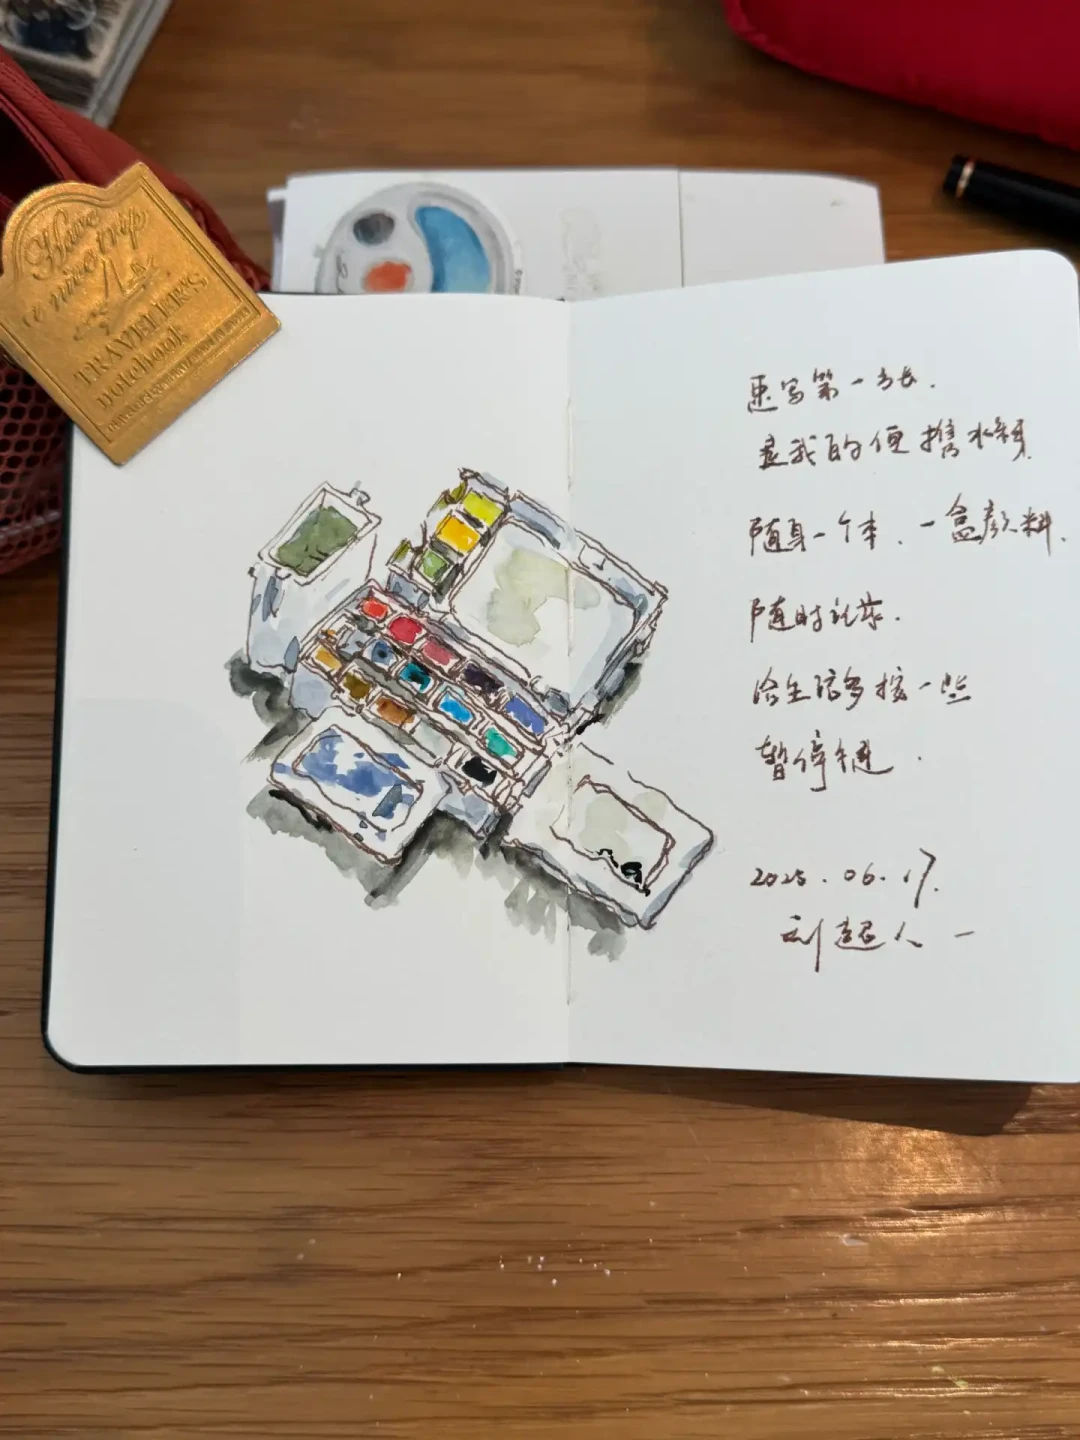 Have
a nice trip
TRAVELER'S
notebook
速写第一方长.
是我的便携水彩
随身一个本.一盒颜料.
随时记录.
给生活多按一些
暂停键.
2025.06.17.